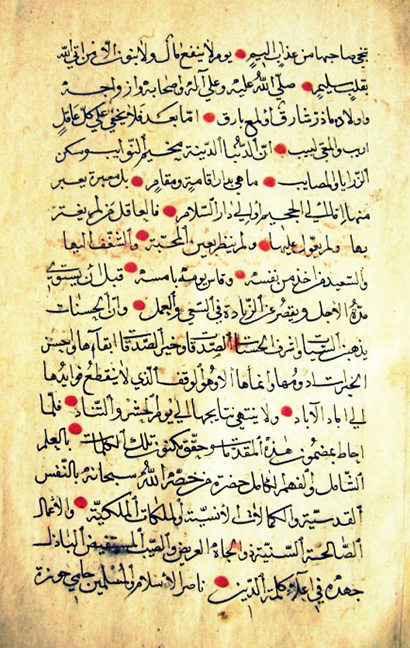 تنجي صاحبها من عذاب اليم يوم لا ينفع مال ولا بنون الا من اتى الله
بقلب سليم صلى الله عليه وعلى آله واصحابه وازواجه
واولاده ماذر شارق ولمع بارق اما بعد فلا يخفى على كل عاقل
اريب والمعي لبيب ان الدنيا الدنية مخيم النوايب ومسكن
الرزايا والمصايب ما هي بدار اقامة ومقام بل جسرة يعبر
منها اما الى الجحيم او الى دار السلام فالعاقل من لم يغتر
بها ولم يعول عليها ولم ينظر بعين المحبة والشغف اليها
والسعيد من اخذ من نفسه وقاس يومه بامسه قبل ان يستوفي
مدة الاجل ويقصر عن الزيادة في السعي والعمل وان الحسنات
يذهبن السيئات واشرف الحسنات الصدقات وخير الصدقات ابقاها واحسن
الخيرات ادومها وانماها الا وهو الوقف الذي لا ينقطع فوايدها
الى اباد الآباد ولا ينتهي نتايجها الى يوم الحشر والتناد فلما
احاط بمضمون هذه المقدمات وحقق مكنون تلك الكلمات بالعلم
الشامل والفهم الكامل حضرة من خصه الله سبحانه بالنفس
القدسية والكمالات الانسية والملكات الملكية والاعمال
الصالحة السنية ذو الجاه العريض والصيت المستفيض الباذل
جهده في اعلاء كلمة الدين ناصر الاسلام والمسلمين حامي حوزة